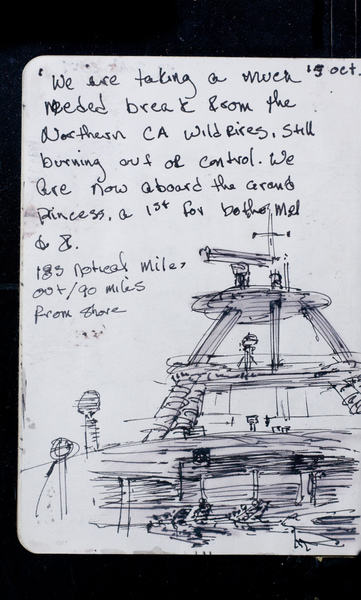 '15 oct.
We are taking a much
needed break from the
Northern CA wildfires, still
burning out of control. We
are now aboard the Grand
Princess, a 1st for both Mel
& I.
183 Notical Miles
out/90 miles
from shore